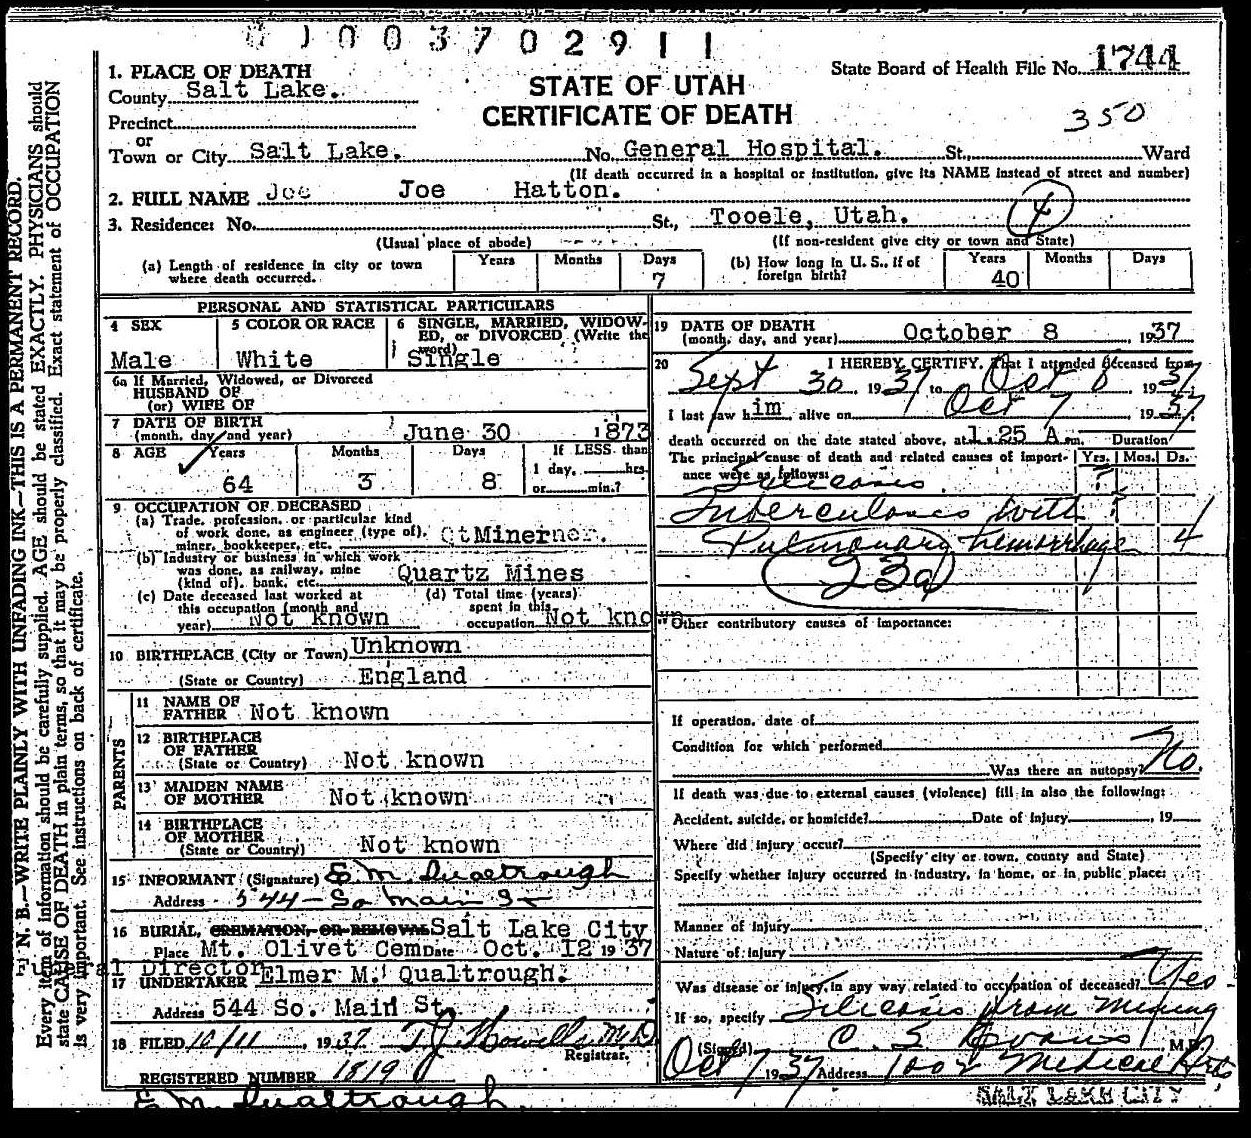 0 1 0 0 3 7 0 2 9 1 1
State Board of Health File No. 1744
STATE OF UTAH
CERTIFICATE OF DEATH
350
1. PLACE OF DEATH
County Salt Lake.
Precinct
or
Town or City Salt Lake. No. General Hospital. St., Ward
(If death occurred in a hospital or institution, give its NAME instead of street and number)
2. FULL NAME Joe Joe Hatton.
3. Residence: No. St., Tooele, Utah. 4
(Usual place of abode) (If non-resident give city or town and State)
(a) Length of residence in city or town where death occurred. Years Months Days 7
(b) How long in U. S., if of foreign birth? Years 40 Months Days
PERSONAL AND STATISTICAL PARTICULARS
4 SEX Male
5 COLOR OR RACE White
6 SINGLE, MARRIED, WIDOWED, or DIVORCED (Write the word) Single
6a If Married, Widowed, or Divorced
HUSBAND OF
(or) WIFE OF
7 DATE OF BIRTH
(month, day and year) June 30 1873
8 AGE Years 64 Months 3 Days 8 If LESS than 1 day, hrs. or min.?
9 OCCUPATION OF DECEASED
(a) Trade, profession, or particular kind
of work done, as engineer (type of),
miner, bookkeeper, etc. QtMinerner.
(b) Industry or business in which work
was done, as railway, mine
(kind of), bank, etc. Quartz Mines
(c) Date deceased last worked at
this occupation (month and
year) Not known
(d) Total time (years)
spent in this
occupation Not known
10 BIRTHPLACE (City or Town) Unknown
(State or Country) England
PARENTS
11 NAME OF
FATHER Not known
12 BIRTHPLACE
OF FATHER
(State or Country) Not known
13 MAIDEN NAME
OF MOTHER Not known
14 BIRTHPLACE
OF MOTHER
(State or Country) Not known
15 INFORMANT (Signature) E. M. Qualtrough
Address 544 - So Main St
16 BURIAL, CREMATION, OR REMOVAL Salt Lake City
Place Mt. Olivet Cem Date Oct. 12 1937
Funeral Director
17 UNDERTAKER Elmer M. Qualtrough.
Address 544 So. Main St.
18 FILED 10/11, 1937 T. J. Howells, M.D.
Registrar.
REGISTERED NUMBER 1819
E M Qualtrough.
19 DATE OF DEATH
(month, day, and year) October 8, 1937
20 I HEREBY CERTIFY, That I attended deceased from
Sept 30 1937 to Oct 8 1937
I last saw him alive on Oct 7 1937
death occurred on the date stated above, at 1.25 A m. Duration
The principal cause of death and related causes of importance were as follows: Yrs. Mos. Ds.
Silicosis. ?
Tuberculosis with ?
Pulmonary hemorrhage 4
23a
Other contributory causes of importance:
If operation, date of
Condition for which performed
Was there an autopsy? No.
If death was due to external causes (violence) fill in also the following:
Accident, suicide, or homicide? Date of injury, 19
Where did injury occur?
(Specify city or town, county and State)
Specify whether injury occurred in industry, in home, or in public place:
Manner of Injury
Nature of injury
Was disease or injury in any way related to occupation of deceased? Yes
If so, specify Silicosis from mining
(Signed) C. S. Evans, M.D.
Oct 7 1937 Address 1002 Medical Arts
SALT LAKE CITY
N. B.—WRITE PLAINLY WITH UNFADING INK—THIS IS A PERMANENT RECORD.
Every item of information should be carefully supplied. AGE should be stated EXACTLY. PHYSICIANS should
state CAUSE OF DEATH in plain terms, so that it may be properly classified. Exact statement of OCCUPATION
is very important. See instructions on back of certificate.